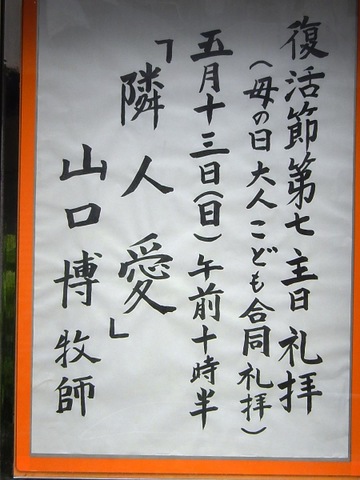 復活節第七主日礼拝
(母の日大人こども合同礼拝)
五月十三日(日)午前十時半
「隣人愛」
山口博牧師